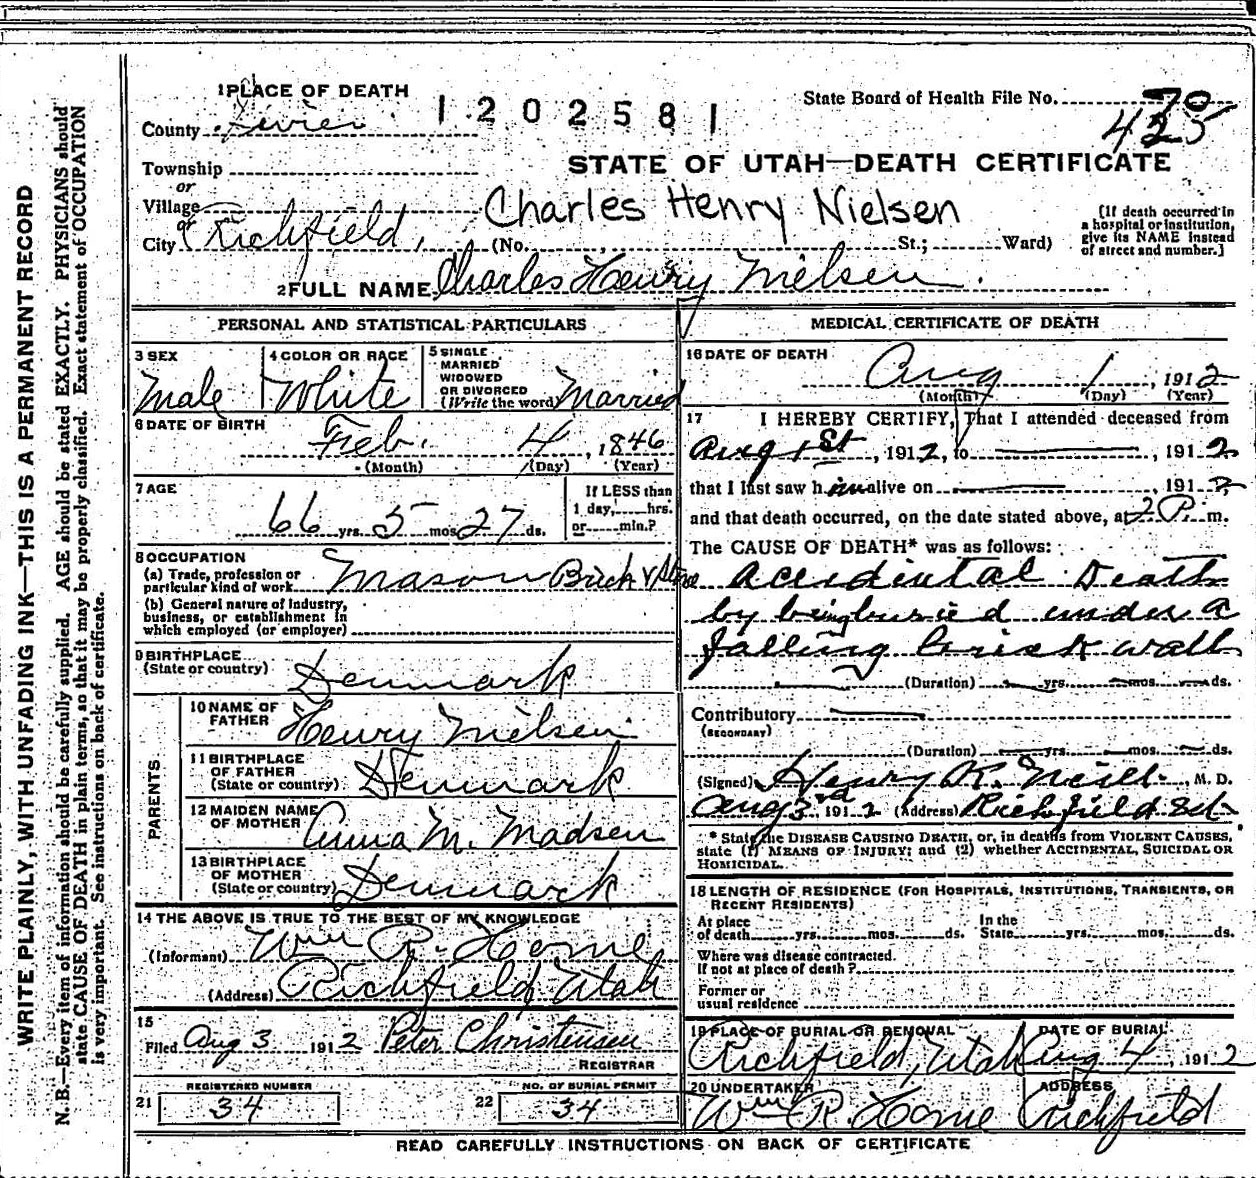 1 PLACE OF DEATH
1202581
State Board of Health File No. 70
425
County Sevier
STATE OF UTAH—DEATH CERTIFICATE
Township
or
Village
or
City Richfield,
Charles Henry Nielsen
(No. St.; Ward)
[If death occurred in a hospital or institution, give its NAME instead of street and number.]
2 FULL NAME Charles Henry Nielsen.
PERSONAL AND STATISTICAL PARTICULARS
3 SEX
Male
4 COLOR OR RACE
White
5 SINGLE
MARRIED
WIDOWED
OR DIVORCED
(Write the word) Married
6 DATE OF BIRTH
Feb. 4, 1846
(Month) (Day) (Year)
7 AGE
66 yrs. 5 mos. 27 ds.
If LESS than
1 day, hrs.
or min.?
8 OCCUPATION
(a) Trade, profession or
particular kind of work Mason Brick & Stone
(b) General nature of Industry,
business, or establishment in
which employed (or employer)
9 BIRTHPLACE
(State or country) Denmark
PARENTS
10 NAME OF
FATHER Henry Nielsen
11 BIRTHPLACE
OF FATHER
(State or country) Denmark
12 MAIDEN NAME
OF MOTHER Anna M. Madsen
13 BIRTHPLACE
OF MOTHER
(State or country) Denmark
14 THE ABOVE IS TRUE TO THE BEST OF MY KNOWLEDGE
(Informant) Wm R. Horne
(Address) Richfield Utah
15
Filed Aug 3 1912 Peter Christensen
REGISTRAR
REGISTERED NUMBER
21 34
NO. OF BURIAL PERMIT
22 34
MEDICAL CERTIFICATE OF DEATH
16 DATE OF DEATH
Aug 1, 1912
(Month) (Day) (Year)
17 I HEREBY CERTIFY, That I attended deceased from
Aug 1st, 1912, to , 1912
that I last saw him alive on , 1912,
and that death occurred, on the date stated above, at 2 P. m.
The CAUSE OF DEATH* was as follows:
Accidental Death
by being buried under a
falling brick wall
(Duration) yrs. mos. ds.
Contributory
(SECONDARY)
(Duration) yrs. mos. ds.
(Signed) Henry K. Neill, M. D.
Aug 3rd 1912 (Address) Richfield
* State the DISEASE CAUSING DEATH, or, in deaths from VIOLENT CAUSES,
state (1) MEANS OF INJURY; and (2) whether ACCIDENTAL, SUICIDAL OR
HOMICIDAL.
18 LENGTH OF RESIDENCE (FOR HOSPITALS, INSTITUTIONS, TRANSIENTS, OR
RECENT RESIDENTS)
At place
of death yrs. mos. ds.
In the
State yrs. mos. ds.
Where was disease contracted.
If not at place of death?
Former or
usual residence
19 PLACE OF BURIAL OR REMOVAL
Richfield, Utah
DATE OF BURIAL
Aug 4, 1912
20 UNDERTAKER
Wm R. Horne
ADDRESS
Richfield
READ CAREFULLY INSTRUCTIONS ON BACK OF CERTIFICATE
WRITE PLAINLY, WITH UNFADING INK—THIS IS A PERMANENT RECORD
N. B.—Every item of information should be carefully supplied. AGE should be stated EXACTLY. PHYSICIANS should
state CAUSE OF DEATH in plain terms, so that it may be properly classified. Exact statement of OCCUPATION
is very important. See instructions on back of certificate.